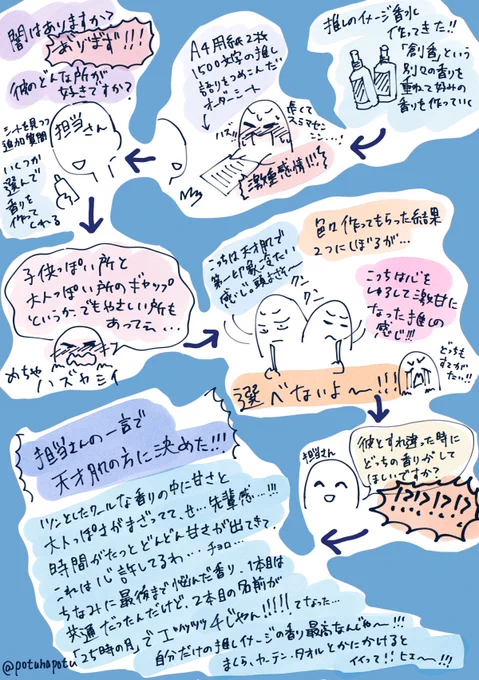 推しのイメージ香水
作ってきた!!
「創香」という
別々の香りを
重ねて好みの
香りを作っていく
A4用紙2枚
1500文字の推し
語りをつめこんだ
オーダーシート
長くて
スミマセン
激重感情!!!
闇はありますか?
あります!!!
彼のどんな所が
好きですか?
担当さん
シートを見つつ
追加質問
いくつか
選んで
香りを
作って
くれる
子供っぽい所と
大人っぽい所のギャップ
というかでもやさしい所も
あってこう...
めちゃ
ハズカシイ
色々作ってもらった結果
2つにしぼるが...
こっちは天才肌で
第一印象冷たい
感じの頭よさそ〜
クン
クン
こっちは心を
ゆるして激甘に
なった推しの
感じ!!!
どっちも
すてが
たい!!
選べないよ〜!!!
担当さん
彼とすれ違った時に
どっちの香りがして
ほしいですか?
!?!?!?!?
担当さんの一言で
天才肌の方に決めた!!!
ツンとしたクールな香りの中に甘さと
大人っぽさがまざってて、せ...先輩感...!!!
時間がたっとどんどん甘さが出てきて、
これは心許してるわ...チョロ...
ちなみに最後まで悩んだ香り、1本目は
共通だったんだけど、2本目の名前が
「25時の月」でエッッッッチじゃん!!!!!てなった...
自分だけの推しイメージの香り最高なんじゃ〜!!!
まくら、カーテン、タオルとかにかけると
イイって!! ヒェ〜!!!
@potuhapotu